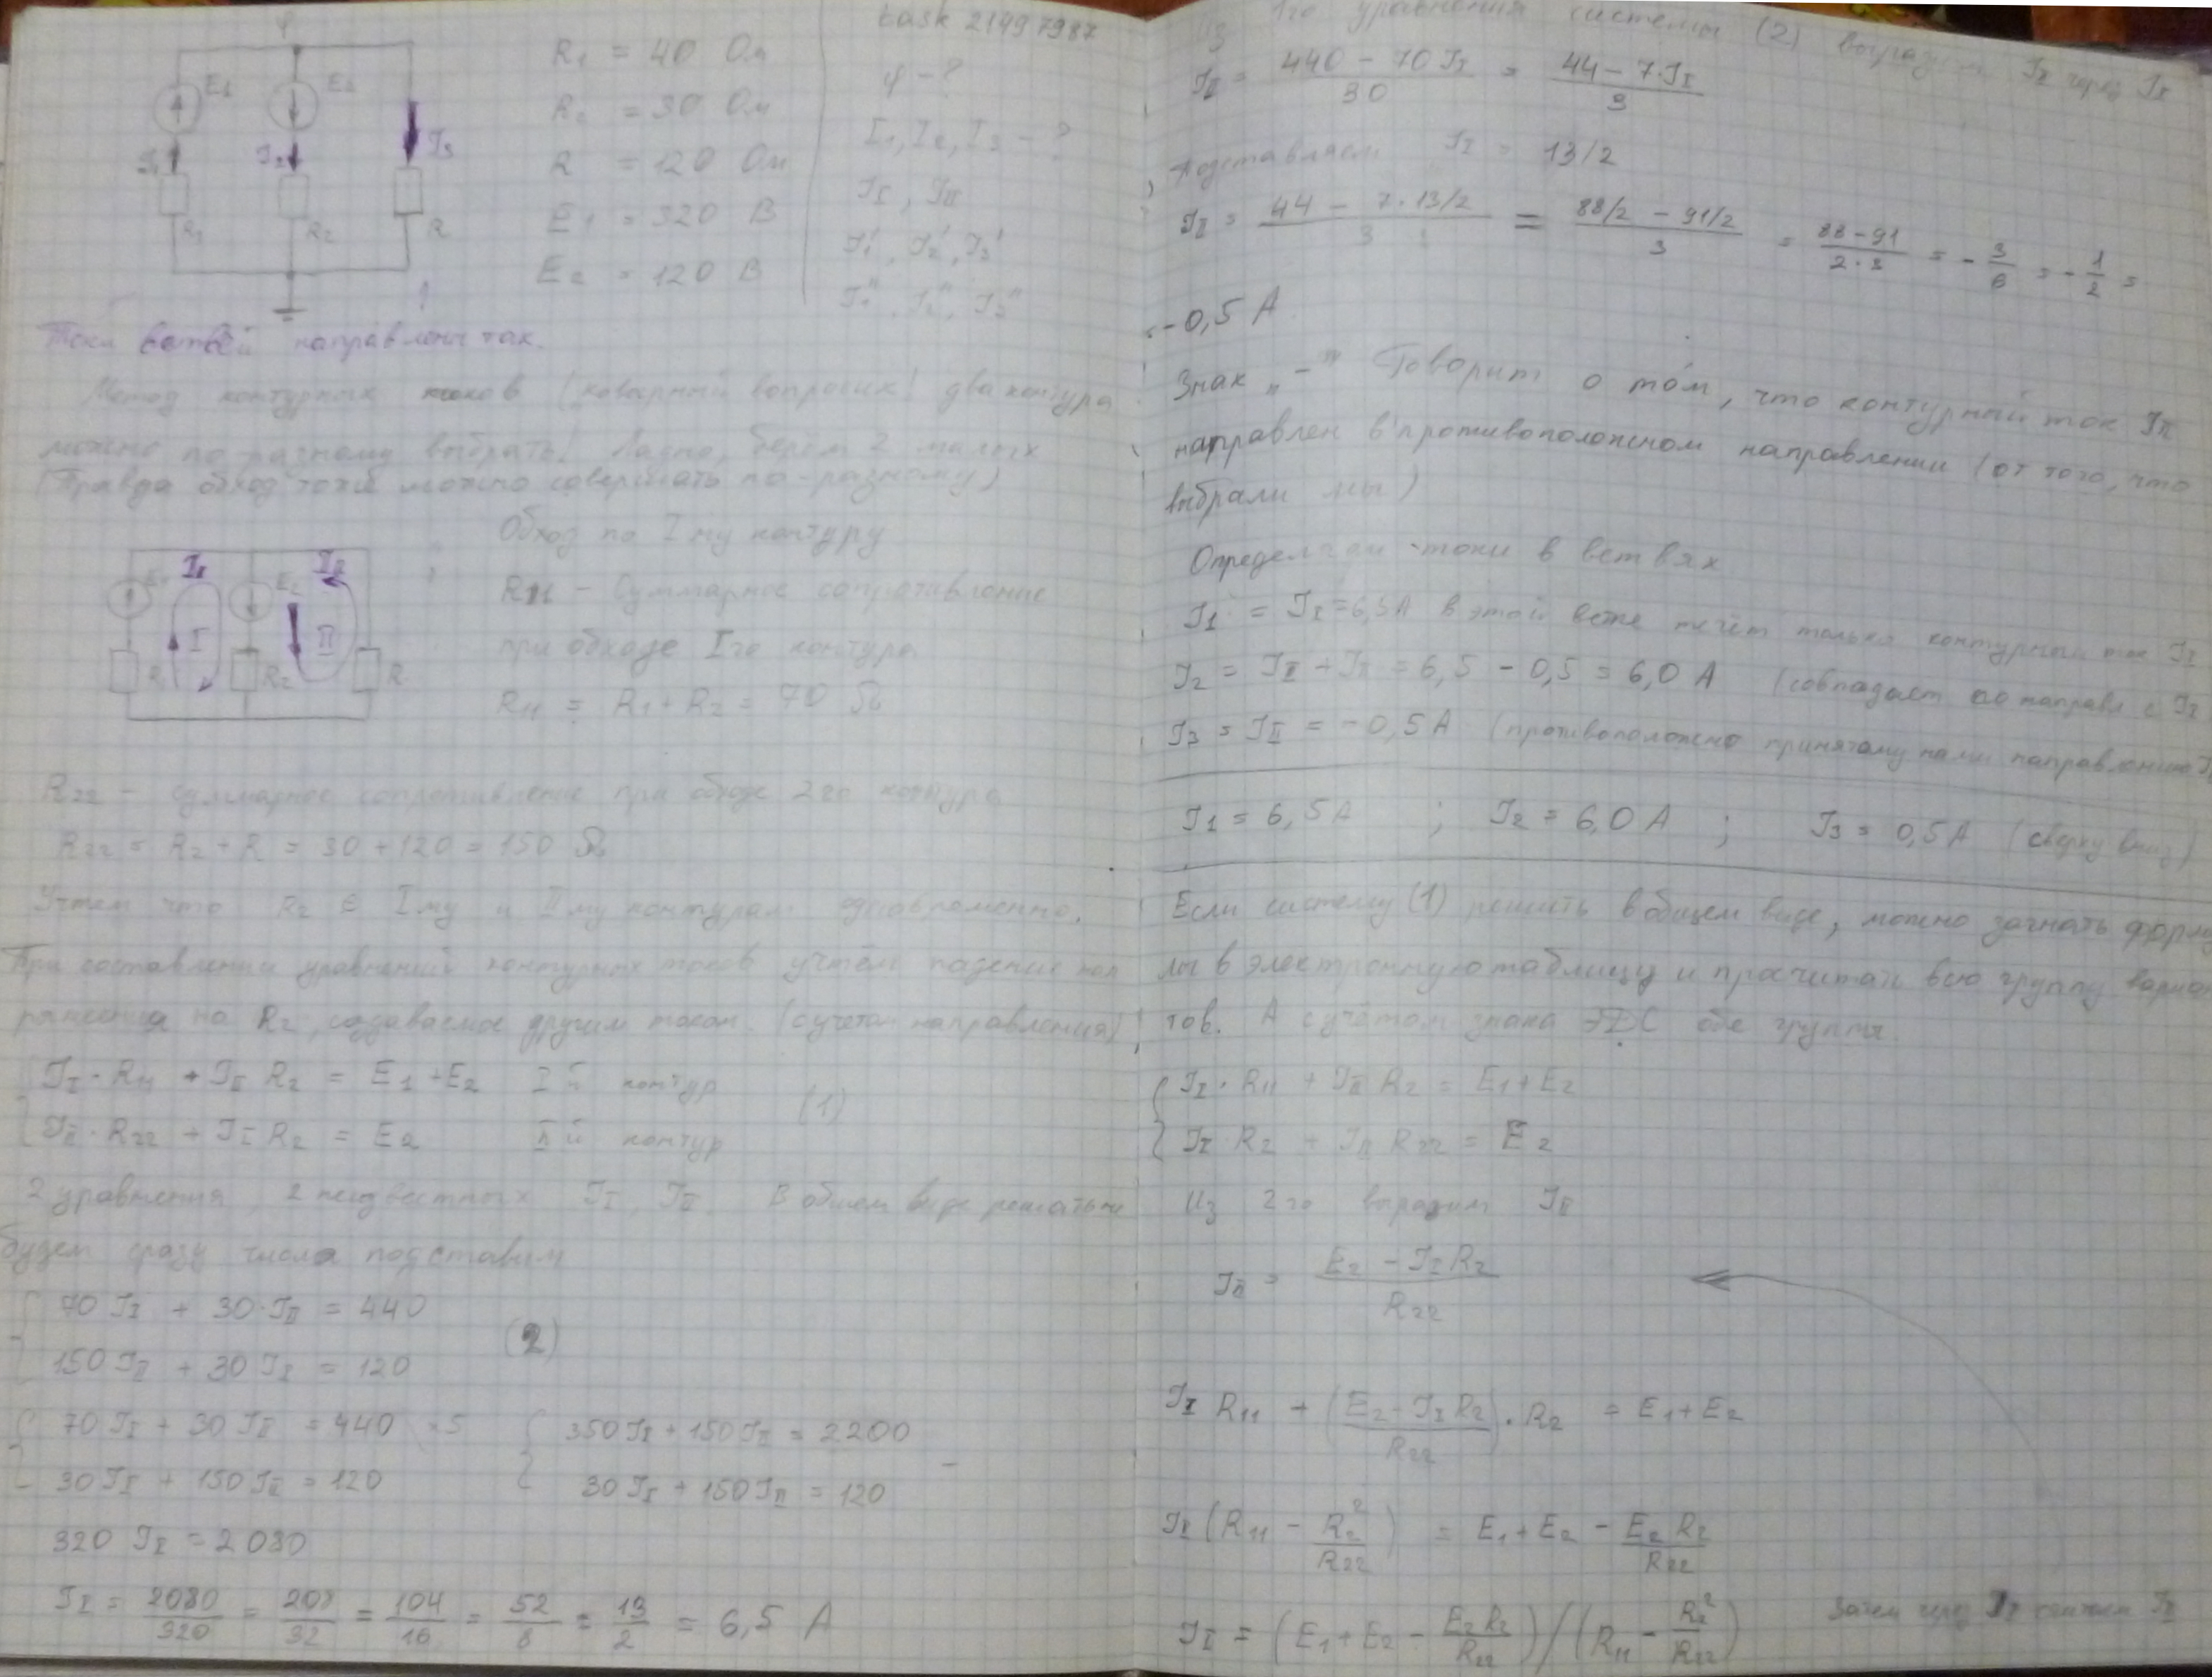 task 21497987
E1
E2
I2
I3
R1
R2
R
R1 = 40 Ом
R2 = 30 Ом
R = 120 Ом
E1 = 320 В
E2 = 120 В
φ - ?
I1, I2, I3 - ?
II, III
I1', I2', I3'
I1", I2", I3"
Токи ветвей направлены так.
Метод контурных токов (коварный вопросик! два контура
можно по разному выбрать! Ладно, берем 2 малых
(Правда обход тоже можно совершать по-разному)
II
III
E2
I
II
R2
R
Обход по I му контуру
R11 - Суммарное сопротивление
при обходе I го контура
R11 = R1 + R2 = 70 Ω
R22 - суммарное сопротивление при обходе 2го контура
R22 = R2 + R = 30 + 120 = 150 Ω
Учтем что R2 ∈ I му и II му контурам одновременно.
При составлении уравнений контурных токов учтём падение нап
ряжения на R2, создаваемое другим током. (с учетом направления)
II · R11 + III R2 = E1 + E2 I й контур
III · R22 + II R2 = E2 II й контур
(1)
2 уравнения, 2 неизвестных II, III. В общем виде решать не
будем сразу числа подставим
70 II + 30·III = 440
150 III + 30 II = 120
(2)
70 II + 30 III = 440 ×5
30 II + 150 III = 120
350 II + 150 III = 2200
30 II + 150 III = 120
−
320 II = 2080
II = 2080/320 = 208/32 = 104/16 = 52/8 = 13/2 = 6,5 А
Из 1го уравнения системы (2) выразим III через II
III = (440 − 70 II)/30 = (44 − 7·II)/3
Подставляем II = 13/2
III = (44 − 7·13/2)/3 = (88/2 − 91/2)/3 = (88−91)/(2·3) = −3/6 = −1/2 =
= −0,5 А
Знак „−" Говорит о том, что контурный ток III
направлен в противоположном направлении (от того, что
выбрали мы)
Определяем токи в ветвях
I1 = II = 6,5А в этой ветке течёт только контурный ток II
I2 = II + III = 6,5 − 0,5 = 6,0 А (совпадает по направл с II
I3 = III = −0,5 А (противоположно принятому нами направлению
I1 = 6,5А ; I2 = 6,0 А ; I3 = 0,5А (сверху вниз)
Если систему (1) решить в общем виде, можно загнать форму
лы в электронную таблицу и просчитать всю группу вариан
тов. А с учётом знака ЭДС обе группы.
II · R11 + III R2 = E1 + E2
II · R2 + III R22 = E2
Из 2го выразим III
III = (E2 − II R2)/R22
II R11 + ((E2 − II R2)/R22) · R2 = E1 + E2
II (R11 − R2²/R22) = E1 + E2 − E2 R2/R22
II = (E1 + E2 − E2 R2/R22)/(R11 − R2²/R22)
Затем через II считаем III